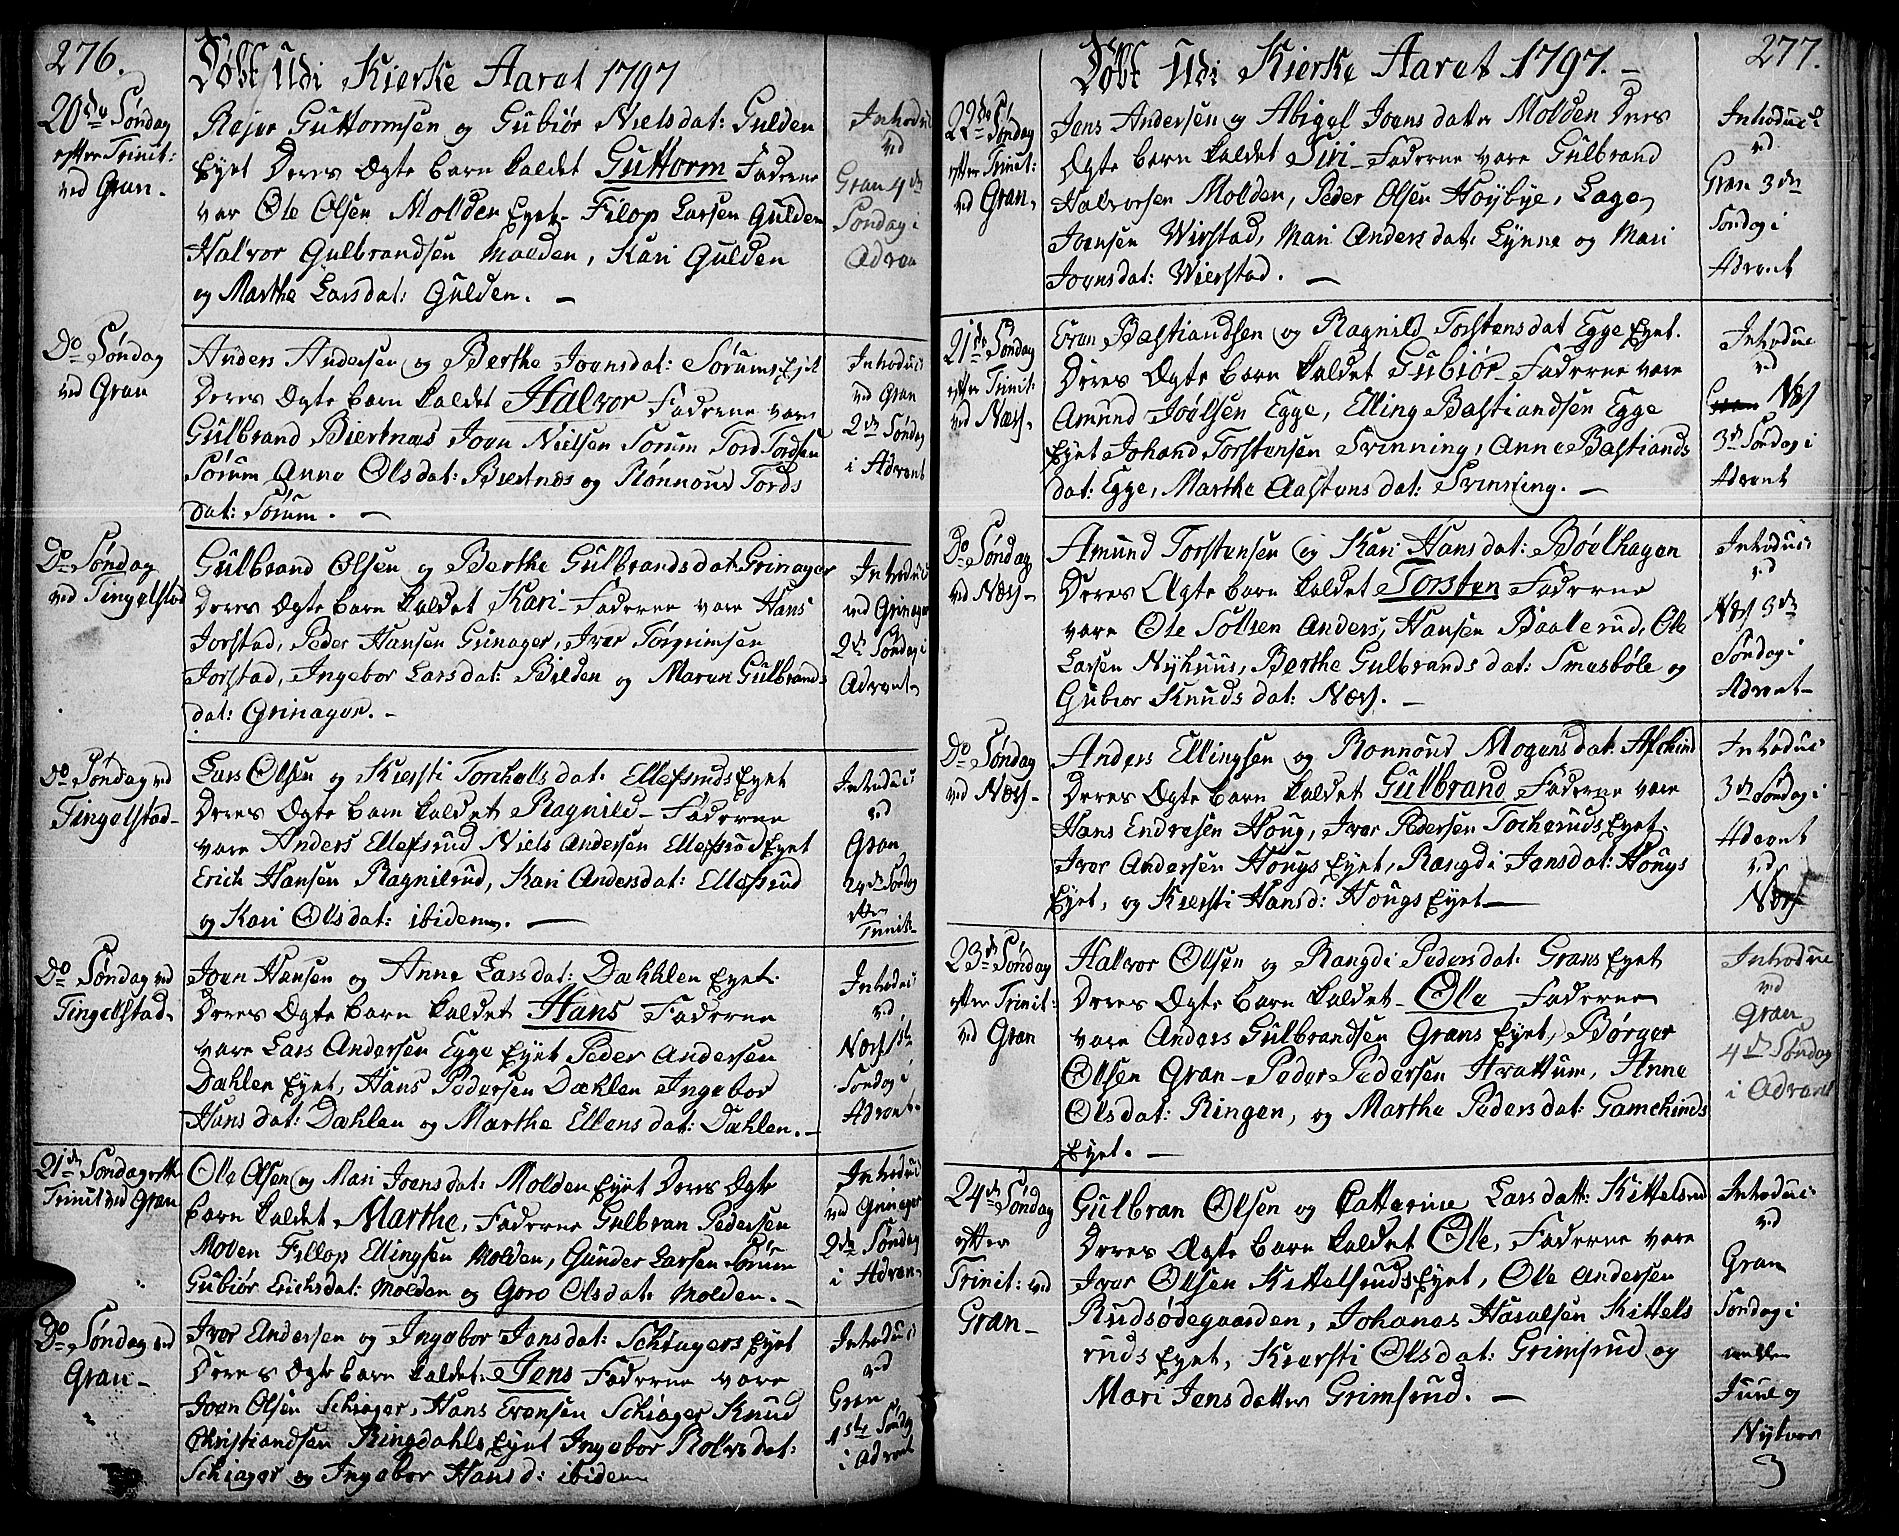 276.
Döbt Udi Kierke Aaret 1797
20de Søndag
efter Trinit:
ved Gran.
Rejer Guttormsen og Gubiør Nielsdat: Gulden
Eyet Deres Ægte barn kaldet Guttorm Faderne
var Ole Olsen Molden Eyet. Filop Larsen Gulden
Halvor Gulbrandsen Molden, Kari Gulden
og Marthe Larsdat: Gulden. —
Introduc
ved
Gran 4de
Søndag i
Adven
Do Søndag
ved Gran
Anders Andersen og Berthe Joensdat: Sørums Ejet
Deres Ægte barn kaldet Halvor Faderne vare
Gulbrand Biertnæs Joen Nielsen Sorum Tord Tordsen
Sørum Anne Olsdat: Biertnes og Rønnoud Tords
dat: Sørum. —
Introduci
ved Gran
2de Søndag
i Advent
Do Søndag
ved Tingelstad
Gulbrand Olsen og Berthe Gulbrandsdat: Grinager
Deres Ægte barn kaldet Kari – Faderne vare Hans
Jorstad, Peder Hansen Grinager, Iver Torgrimsen
Jorstad, Ingebor Larsdat: Bilden og Maren Gulbrands
dat: Grinager. –
Introduci
ved Grinager
2de Søndag i
Advent
Do Søndag ved
Tingelstad
Lars Olsen og Kiersti Torchellsdat: Ellefsruds Eyet
Deres Ægte barn kaldet Ragnild – Faderne
vare Anders Ellefsrud Niels Andersen Ellefsrud Eyet
Erich Hansen Ragnilrud, Kari Andersdat: Ellefsrud
og Kari Olsdat: ibidem. —
Introduci
ved
Gran
24de Søndag
efter
Trinit
Do Søndag ved
Tingelstad
Joen Hansen og Anne Larsdat: Dæhhlen Eyet.
Deres Ægte barn kaldet Hans Faderne
vare Lars Andersen Egge Eyet Peder Andersen
Dæhlen Eyet, Hans Pedersen Dæhlen Ingebor
Hansdat: Dæhlen og Marthe Ellensdat: Dæhlen. —
Introduci
ved
Næs 1ste
Søndag i
Advent.
21de Søndag efter
Trinit ved Gran
Ole Olsen og Mari Joensdat: Molden Eyet Deres Ægte
barn kaldet Marthe, Faderne Gulbran Pedersen
Molden Fillop Ellingsen Molden, Gunder Larsen Sørum
Gubiør Erichsdat: Molden og Goro Olsdat: Molden. –
Introduci
ved Grinager
2de Søndag
i Adven
Do Søndag ved
Gran –
Iver Andersen og Ingebor Jonsdat: Schiagers Eyet
Deres Ægte barn kaldet: Jens Faderne vare
Joen Olsen Schiager, Hans Evensen Schiager Knud
Christiandsen Ringdahls Eyet Ingebor Rolvsdat:
Schiager og Ingebor Hansd: ibidem
Introduci
ved
Gran
1ste Søndag
i Advent
277.
Döbt Udi Kierke Aaret 1797. –
22de Søndag
efter Trinit:
ved Gran,
Jens Andersen og Abigel Joensdatter Molden Deres
Ægte barn kaldet Siri – Faderne vare Gulbrand
Halvorsen Molden, Peder Olsen Høybye, Lage
Joensen Wirstad, Mari Andersdat: Lynne og Mari
Joensdat: Wierstad. —
Introduci
ved
Gran 3de
Søndag i
Advent
21de Søndag
efter Trinit:
ved Næs.
Even Bastiandsen og Ragnild Torstensdat Egge Eyet.
Deres Ægte barn kaldet Gubiør Faderne vare
Amund Joelsen Egge, Elling Bastiandsen Egge
Eyet Johand Torstensen Svinning, Anne Bastiands
dat: Egge, Marthe Aastensdat: Svinning. –
Introduc
ved
Næs
3de Søndag i
Advent
Do Søndag
ved Næs –
Amund Torstensen og Kari Hansdat: Böelhagen
Deres Ægte barn kaldet Torsten Faderne
vare Ole Solfsen Anders Hansen Baalerud, Ole
Larsen Nyhuus, Berthe Gulbrandsdat: Smesbøle og
Gubior Knudsdat: Næs. —
Introduci
ved
Næs 3de
Søndag i
Advent –
Do Søndag
ved Næs –
Anders Ellingsen og Ronnoud Mogensdat:
Deres Ægte barn kaldet Gulbrand Faderne vare
Hans Endresen Houg, Iver Pedersen Tocheruds Eyet.
Iver Andersen Hougs Eyet, Rangdi Jansdat: Hougs
Eyet, og Kiersti Hansd: Hougs Eyet —
Introduci
3de Søndag i
Advent
ved
Næs
23de Søndag
efter Trinit:
ved Gran
Halvor Olsen og Rangdi Pedersdat: Grans Eyet
Deres Ægte barn kaldet – Ole Faderne
vare Anders Gulbrandsen Grans Eyet, Børger
Olsen Gran – Peder Pedersen Hvattum, Anne
Olsdat: Ringen, og Marthe Pedersdat: Gamchinds
Eyet. —
Introduc
ved
Gran
4de Søndag
i Advent
24de Søndag
efter
Trinit: ved
Gran –
Gulbran Olsen og Catterine Larsdatt: Kittelsrud
Deres Ægte barn kaldet Ole, Faderne vare
Iver Olsen Kittelsruds Eyet, Ole Andersen
Rudsødegaarden, Johanes Hovalsen Kittels
ruds Eyet, Kiersti Olsdat: Grimsrud og
Mari Jensdatter Grimsrud. —
Introduci
ved
Gran
Søndag i
mellem
Juul og
Nytaar